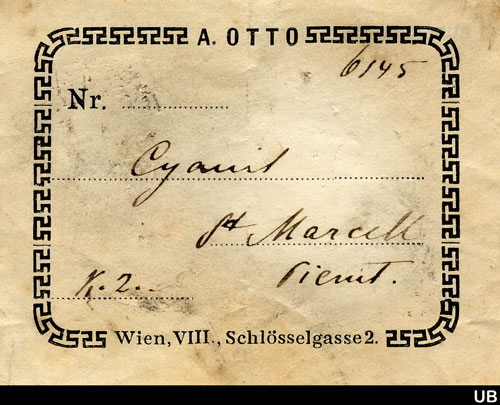 A. OTTO
6145
Nr.
Cyanit
St Marcell
Piemt.
K. 2.
Wien, VIII., Schlösselgasse 2.
UB